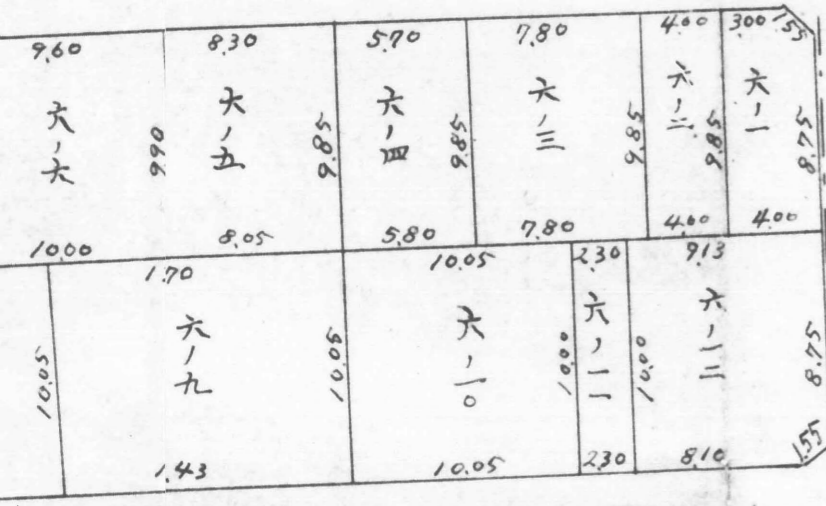 9.60 8.30 5.70 7.80 4.60 300 1.55
六ノ六
9.90
六ノ五
9.85
六ノ四
9.85
六ノ三
9.85
六ノ二
9.85
六ノ一
8.75
10.00 8.05 5.80 7.80 4.60 4.00
1.70 10.05 2.30 9.13
10.05
六ノ九
10.05
六ノ一〇
10.00
六ノ一一
10.00
六ノ一二
8.75
1.43 10.05 2.30 8.10 1.55